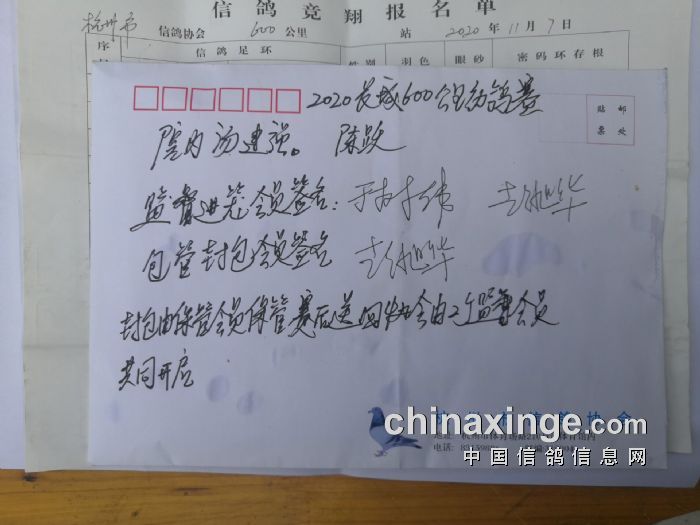 信鸽竞翔报名单
杭州市 信鸽协会 600 公里 站 2020 年 11 月 7 日
序 信鸽足环 性别 羽色 眼砂 密码环存根
2020长城600公里幼鸽赛
贴 邮
票 处
内汤建强。 陈跃
监督进笼会员签名：
包管封包会员签名
封包由保管会员保管赛后送回协会由2个监督会员
共同开启
信鸽协会
地址：杭州市体育场路
电话：
chinaxinge.com
中国信鸽信息网